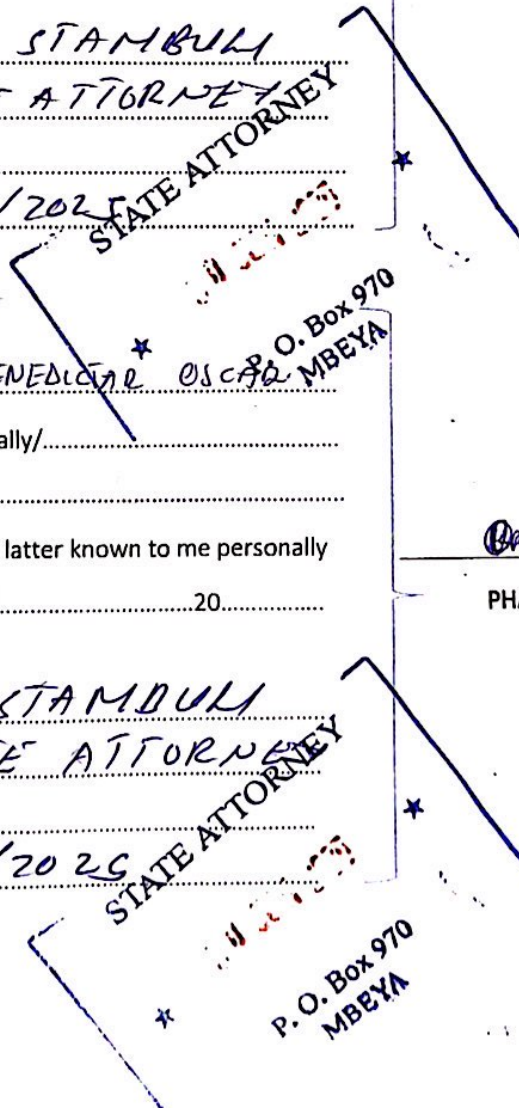 STAMBULI
ATTORNEY
/2025
STATE ATTORNEY
P. O. Box 970
MBEYA
OSCAR
ally/
latter known to me personally
20
PHA
STAMBULI
E ATTORNEY
/2025
STATE ATTORNEY
P. O. Box 970
MBEYA